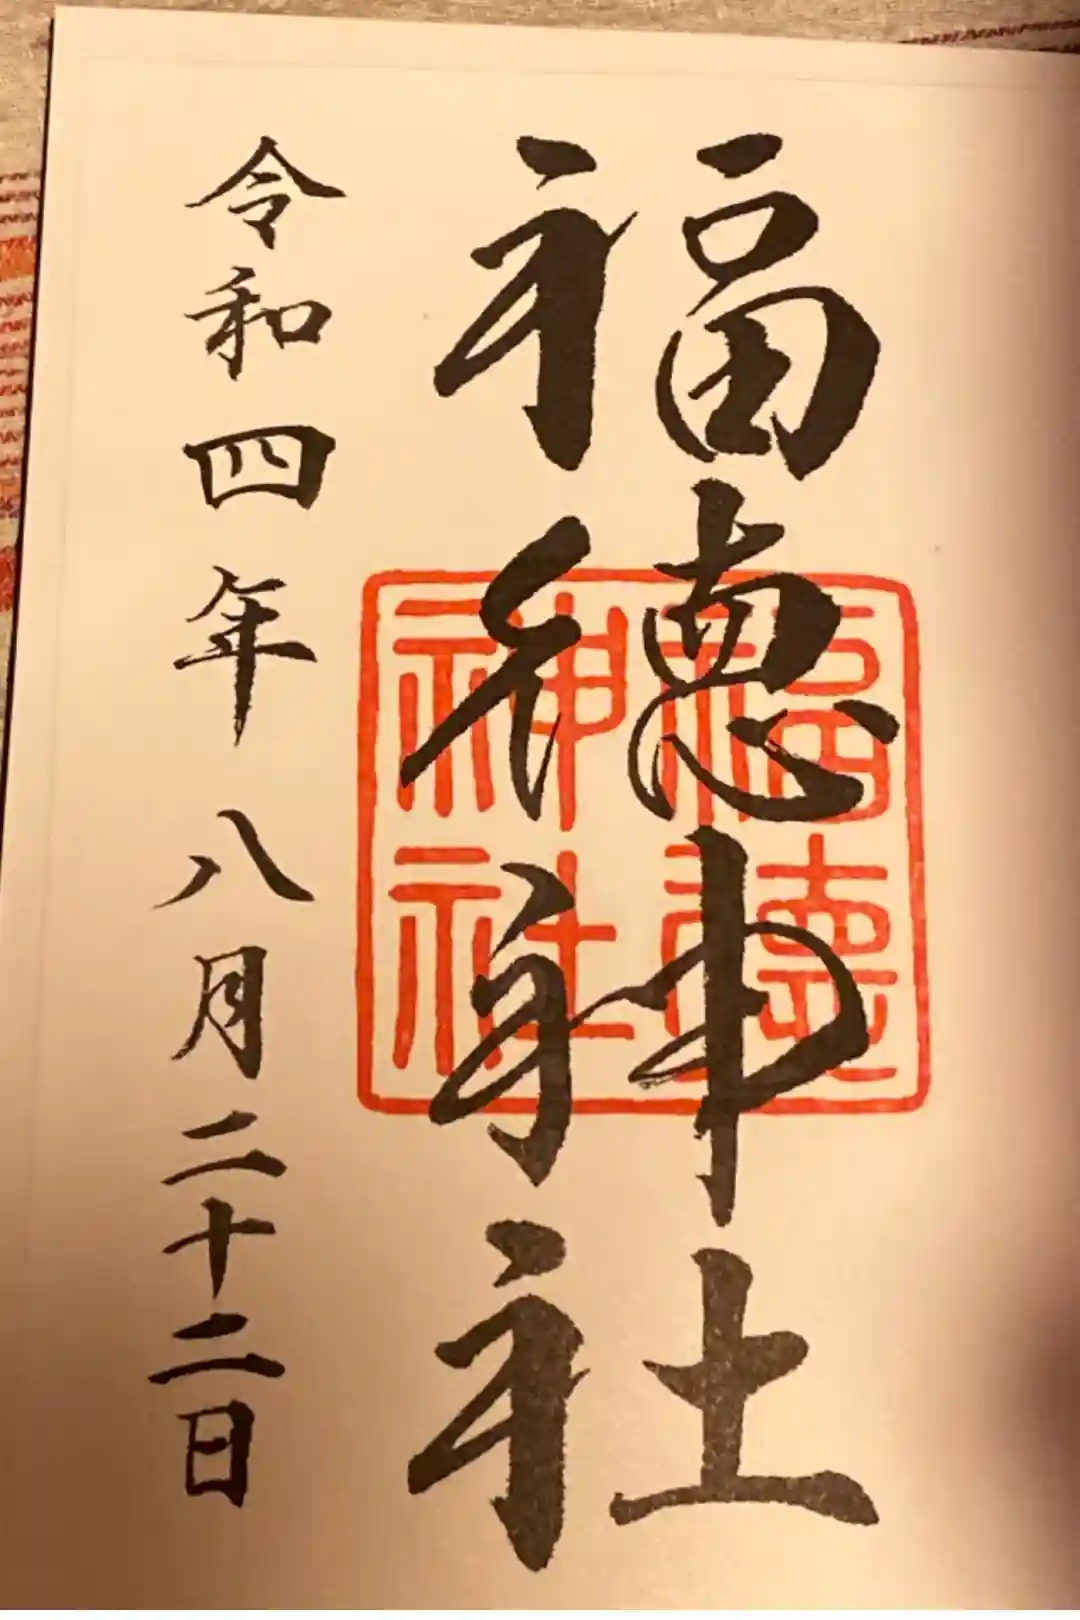 福徳神社
福徳
神社
令和四年八月二十二日